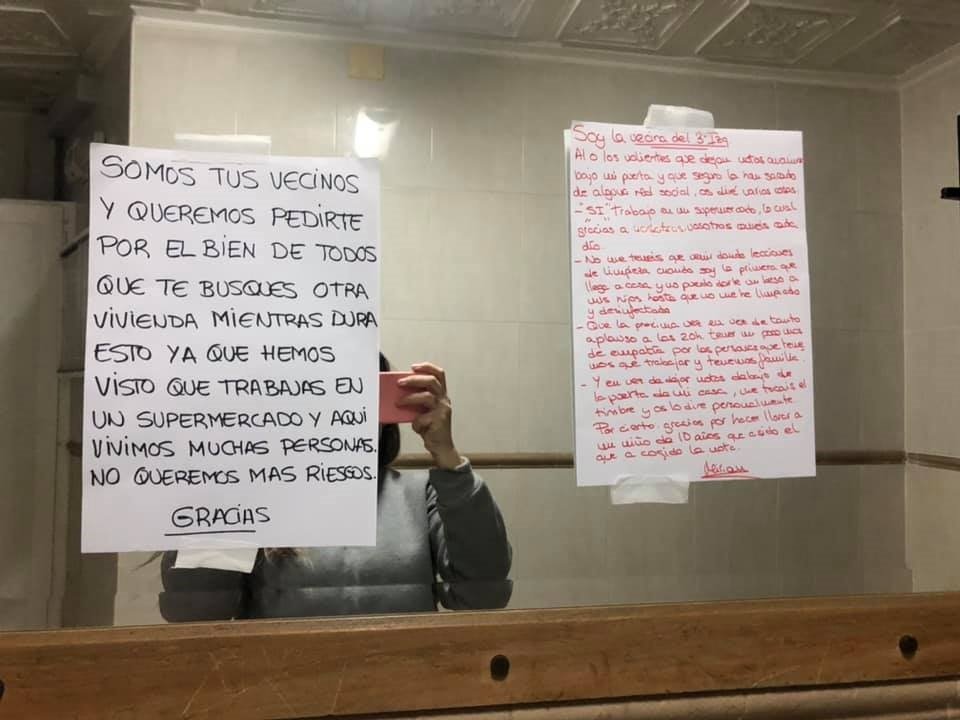 SOMOS TUS VECINOS
Y QUEREMOS PEDIRTE
POR EL BIEN DE TODOS
QUE TE BUSQUES OTRA
VIVIENDA MIENTRAS DURA
ESTO YA QUE HEMOS
VISTO QUE TRABAJAS EN
UN SUPERMERCADO Y AQUI
VIVIMOS MUCHAS PERSONAS.
NO QUEREMOS MAS RIESGOS.
GRACIAS
Soy la vecina del 3º Izq
Al o los valientes que dejan notas
bajo mi puerta y que seguro la han sacado
de alguna red social, os diré varias cosas:
- "SI" Trabajo en un supermercado, lo cual
gracias a nosotros vosotros coméis cada
día.
- No me tenéis que venir dando lecciones
de limpieza cuando soy la primera que
llega a casa y no puedo darle un beso a
mis hijos hasta que no me he limpiado
y desinfectado
- Que la próxima vez en vez de tanto
aplauso a las 20h tener un poco más
de empatía por las personas que tene
mos que trabajar y tenemos familia.
- Y en vez de dejar notas debajo de
la puerta de mi casa, me tocais el
timbre y os lo diré personalmente.
Por cierto, gracias por hacer llorar a
un niño de 10 años que a sido el
que a cogido la nota.
Miriam